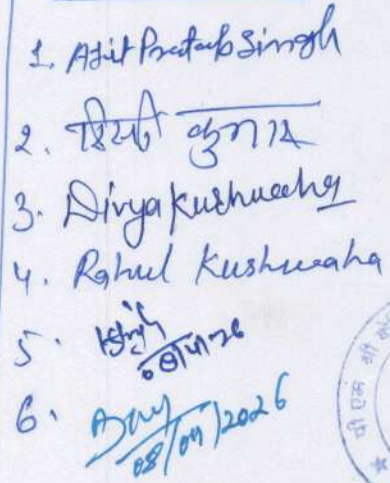 1. Ajit Pratap Singh
2. कुमार
3. Divya Kushwaha
4. Rahul Kushwaha
5. 08/4/26
6. 08/04/2026
पी एम श्री